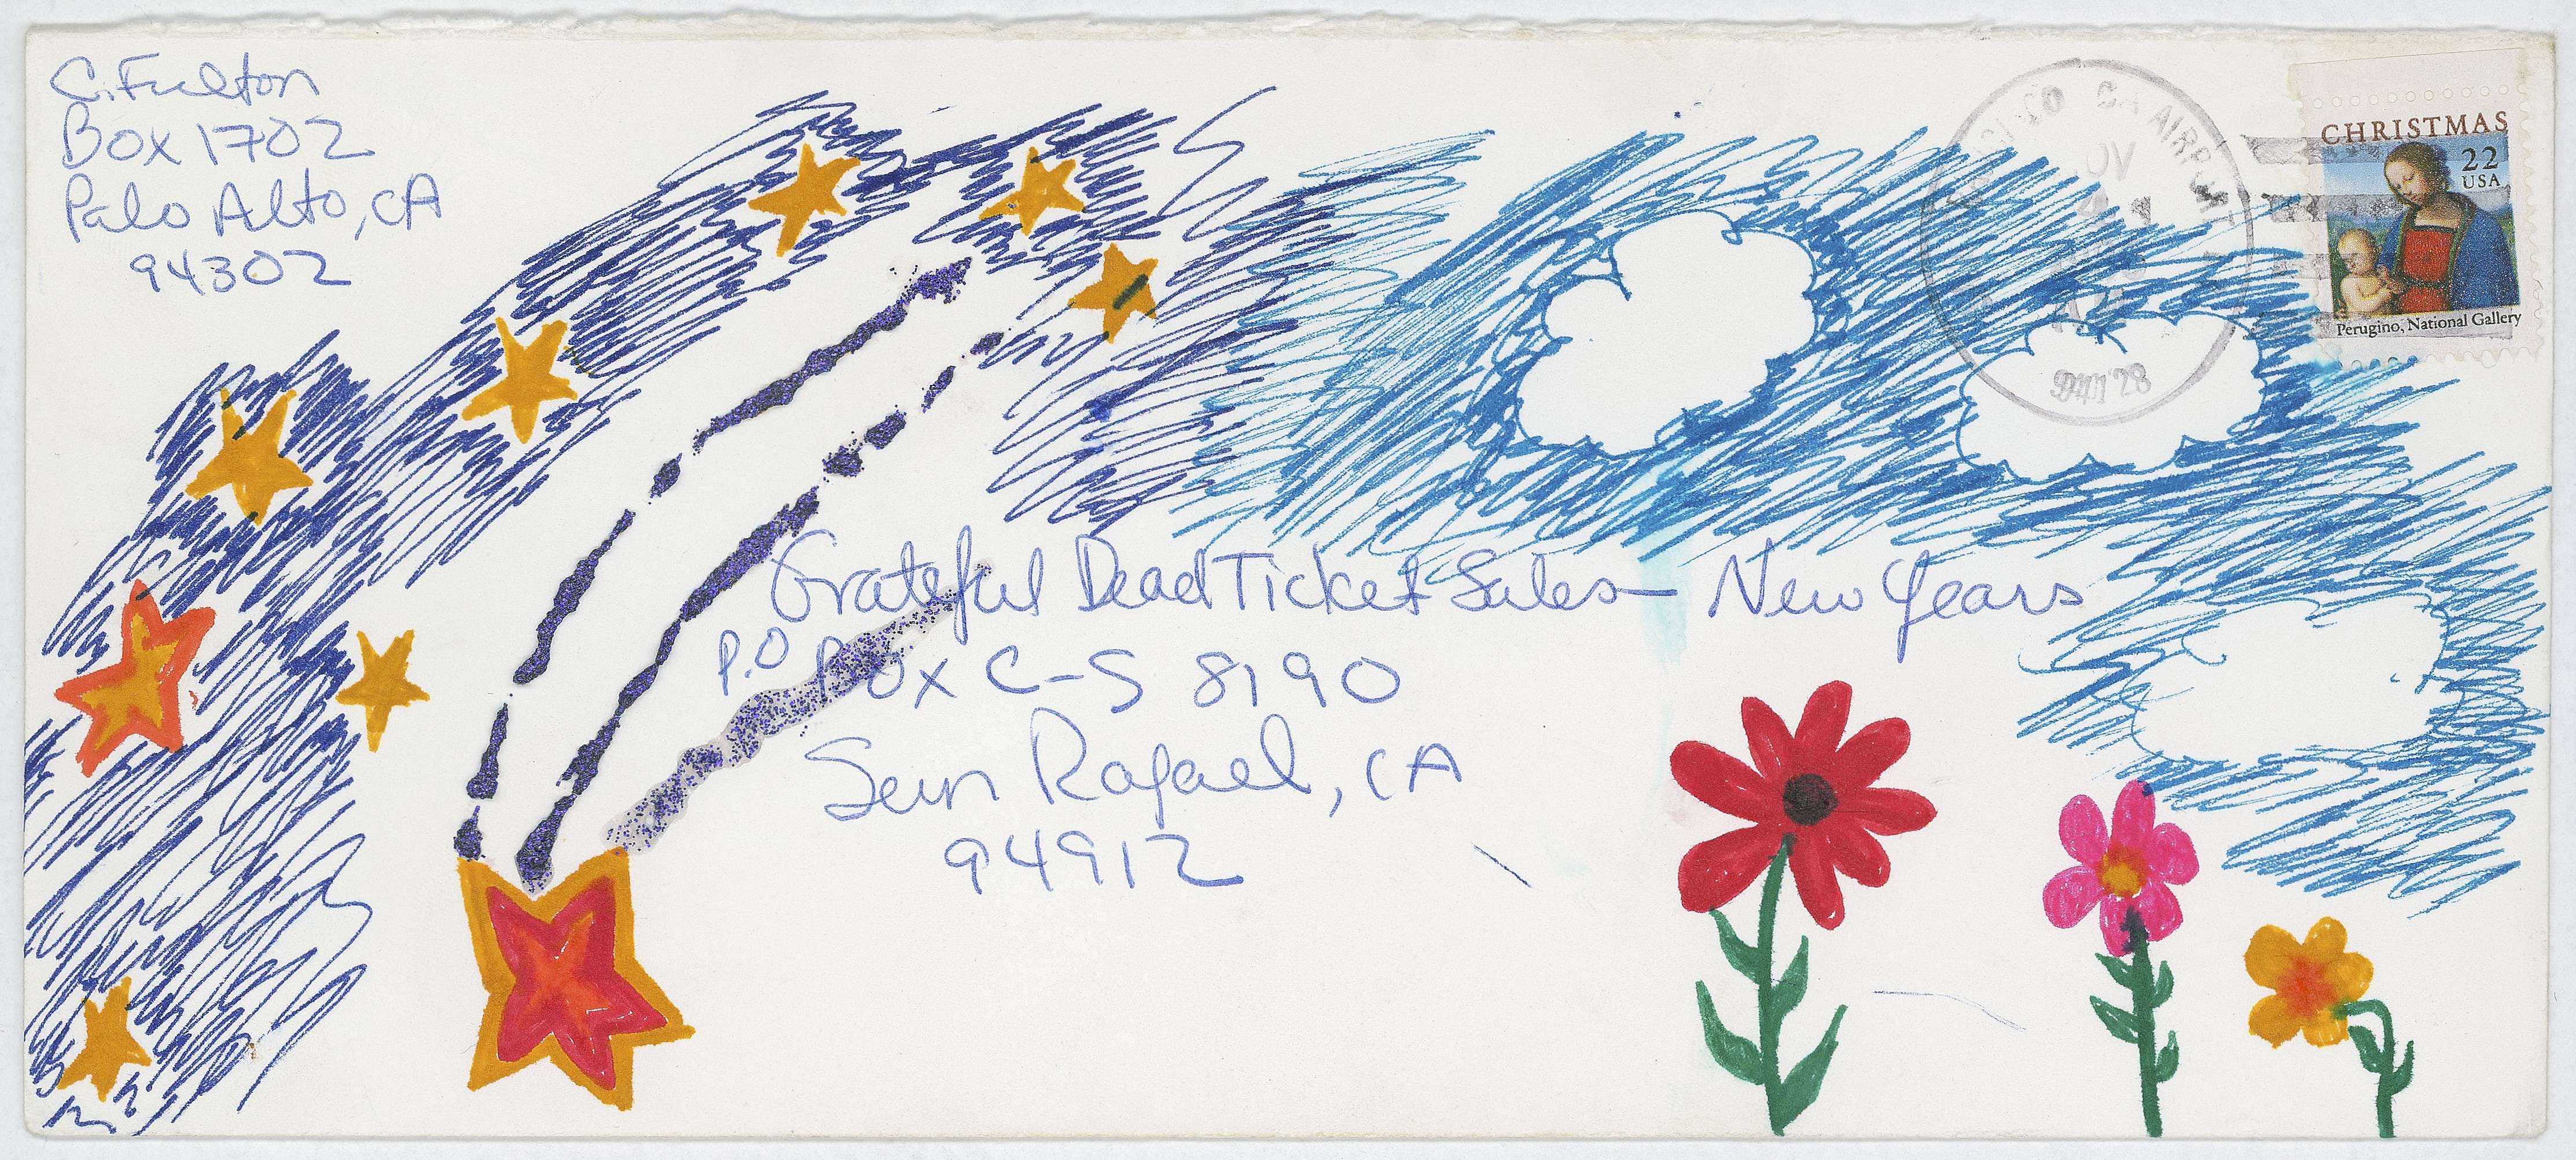 C. Fulton
Box 1702
Palo Alto, CA
94302
CA AIRPORT
CHRISTMAS
22
USA
Perugino, National Gallery
Grateful Dead Ticket Sales — New Years
P.O Box C-S 8190
San Rafael, CA
94912